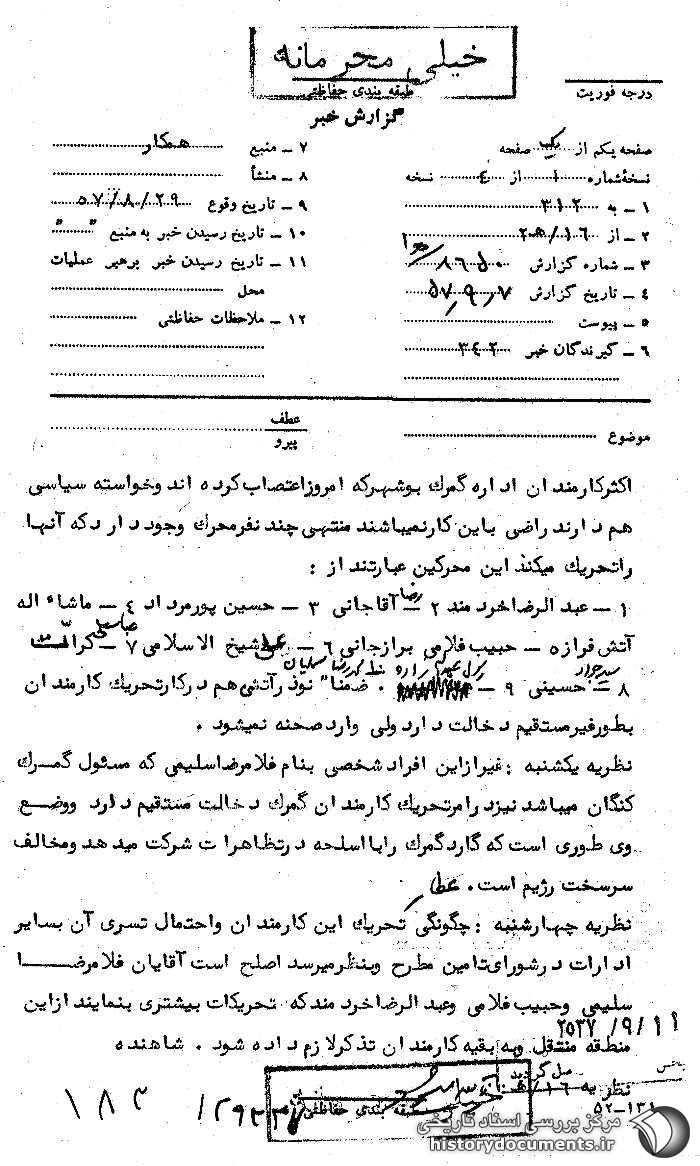 خیلی محرمانه
طبقه بندی حفاظتی
درجه فوریت
گزارش خبر
صفحه یکم از یک صفحه
نسخهٔ شماره ۱ از ٤ نسخه
۱ ـ به ۳۱۲
۲ ـ از ۱۶/ ه ۲
۳ ـ شماره گزارش ۸۶۵۰
٤ ـ تاریخ گزارش ۵۷٫۹٫۷
٥ ـ پیوست
٦ ـ گیرندگان خبر ۳٤۲
۷ ـ منبع همکار
۸ ـ منشأ
۹ ـ تاریخ وقوع ۵۷/۸/۲۹
۱۰ ـ تاریخ رسیدن خبر به منبع " "
۱۱ ـ تاریخ رسیدن خبر برهبر عملیات
محل
۱۲ ـ ملاحظات حفاظتی
موضوع
عطف
پیرو
اکثرکارمندان اداره گمرك بوشهرکه امروزاعتصاب کرده اند وخواسته سیاسی
هم دارند راضی باین کارنمیباشند منتهی چند نفرمحرك وجود دارد که آنها
راتحریك میکنند این محرکین عبارتند از :
۱ ـ عبد الرضاخرد مند ۲ ـ رضا آقاجانی ۳ ـ حسین پورمرداد ٤ ـ ماشاء اله
آتش فرازه ـ حبیب غلامی برازجانی ٦ ـ علی شیخ الاسلامی ۷ ـ کرامت
۸ ـ سید جواد حسینی ۹ ـ . ضمنا" نوذرآتشی هم درکارتحریك کارمندان
بطورغیرمستقیم دخالت دارد ولی وارد صحنه نمیشود .
نظریه یکشنبه : غیرازاین افراد شخصی بنام غلامرضاسلیمی که مسئول گمرك
کنگان میباشد نیزد رامرتحریك کارمندان گمرك دخالت مستقیم دارد ووضع
وی طوری است که گارد گمرك راباا سلحه درتظاهرات شرکت میدهد ومخالف
سرسخت رژیم است . عطار
نظریه چهارشنبه : چگونگی تحریك این کارمندان واحتمال تسری آن بسایر
ادارات درشورای تامین مطرح وبنظرمیرسد اصلح است آقایان غلامرضا
سلیمی وحبیب غلامی وعبد الرضاخرد مند که تحریکات بیشتری بنمایند ازاین
منطقه منتقل وبه بقیه کارمندان تذکرلازم داده شود . شاهنده
۲۵۳۷/۹/۱۱
نظریه ۱۶/ ه
طبقه بندی حفاظتی
۵۲-۱۳۱
۱۸۳
مرکز بررسی اسناد تاریخی
historydocuments.ir